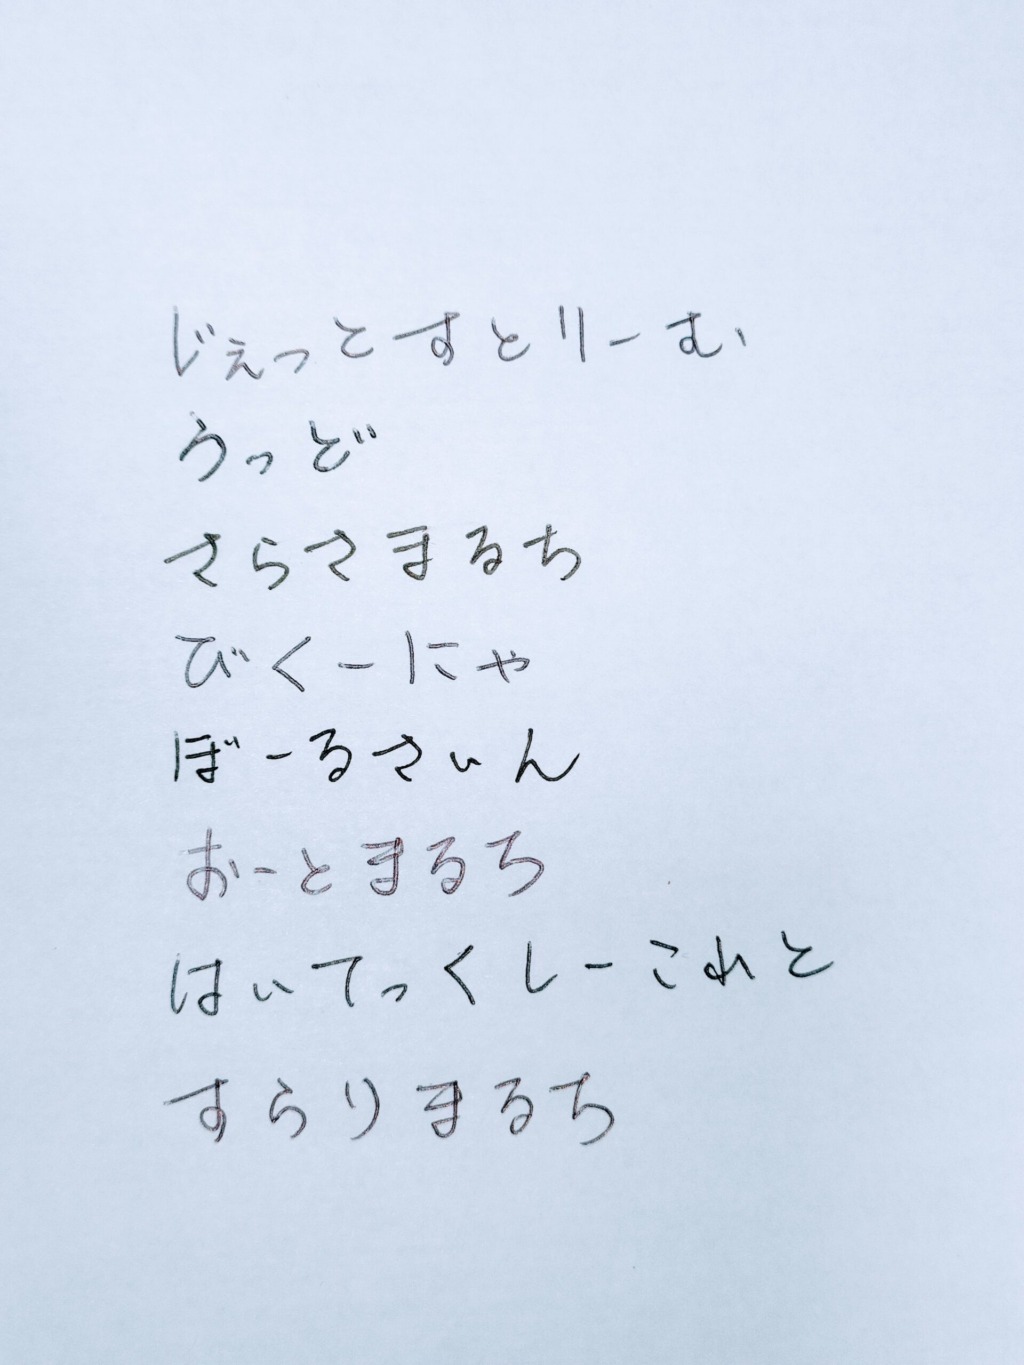 じぇっとすとりーむ
うっど
さらさまるち
びくーにゃ
ぼーるさいん
おーとまるち
はいてっくしーこれと
すらりまるち